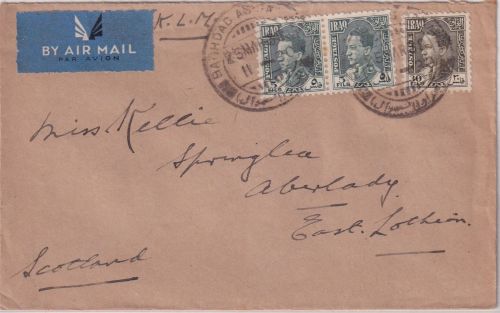 K.L.M
BY AIR MAIL
PAR AVION
BAGHDAD
IRAQ
POSTAGE
FILS
IRAQ
POSTAGE
FILS
IRAQ
POSTAGE
10
FILS
Miss Kellie
Springlea
Aberlady.
East. Lothian.
Scotland